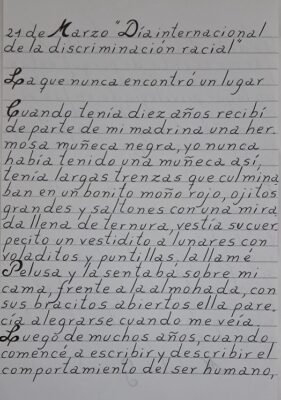 21 de Marzo "Día internacional
de la discriminación racial"
La que nunca encontró un lugar
Cuando tenía diez años recibí
de parte de mi madrina una her-
mosa muñeca negra, yo nunca
había tenido una muñeca así,
tenía largas trenzas que culmina
ban en un bonito moño rojo, ojitos
grandes y saltones con una mira
da llena de ternura, vestía su cuer
pecito un vestidito a lunares con
voladitos y puntillas, la llamé
Pelusa y la sentaba sobre mi
cama, frente a la almohada, con
sus bracitos abiertos ella pare-
cía alegrarse cuando me veía.
Luego de muchos años, cuando
comencé a escribir y describir el
comportamiento del ser humano,